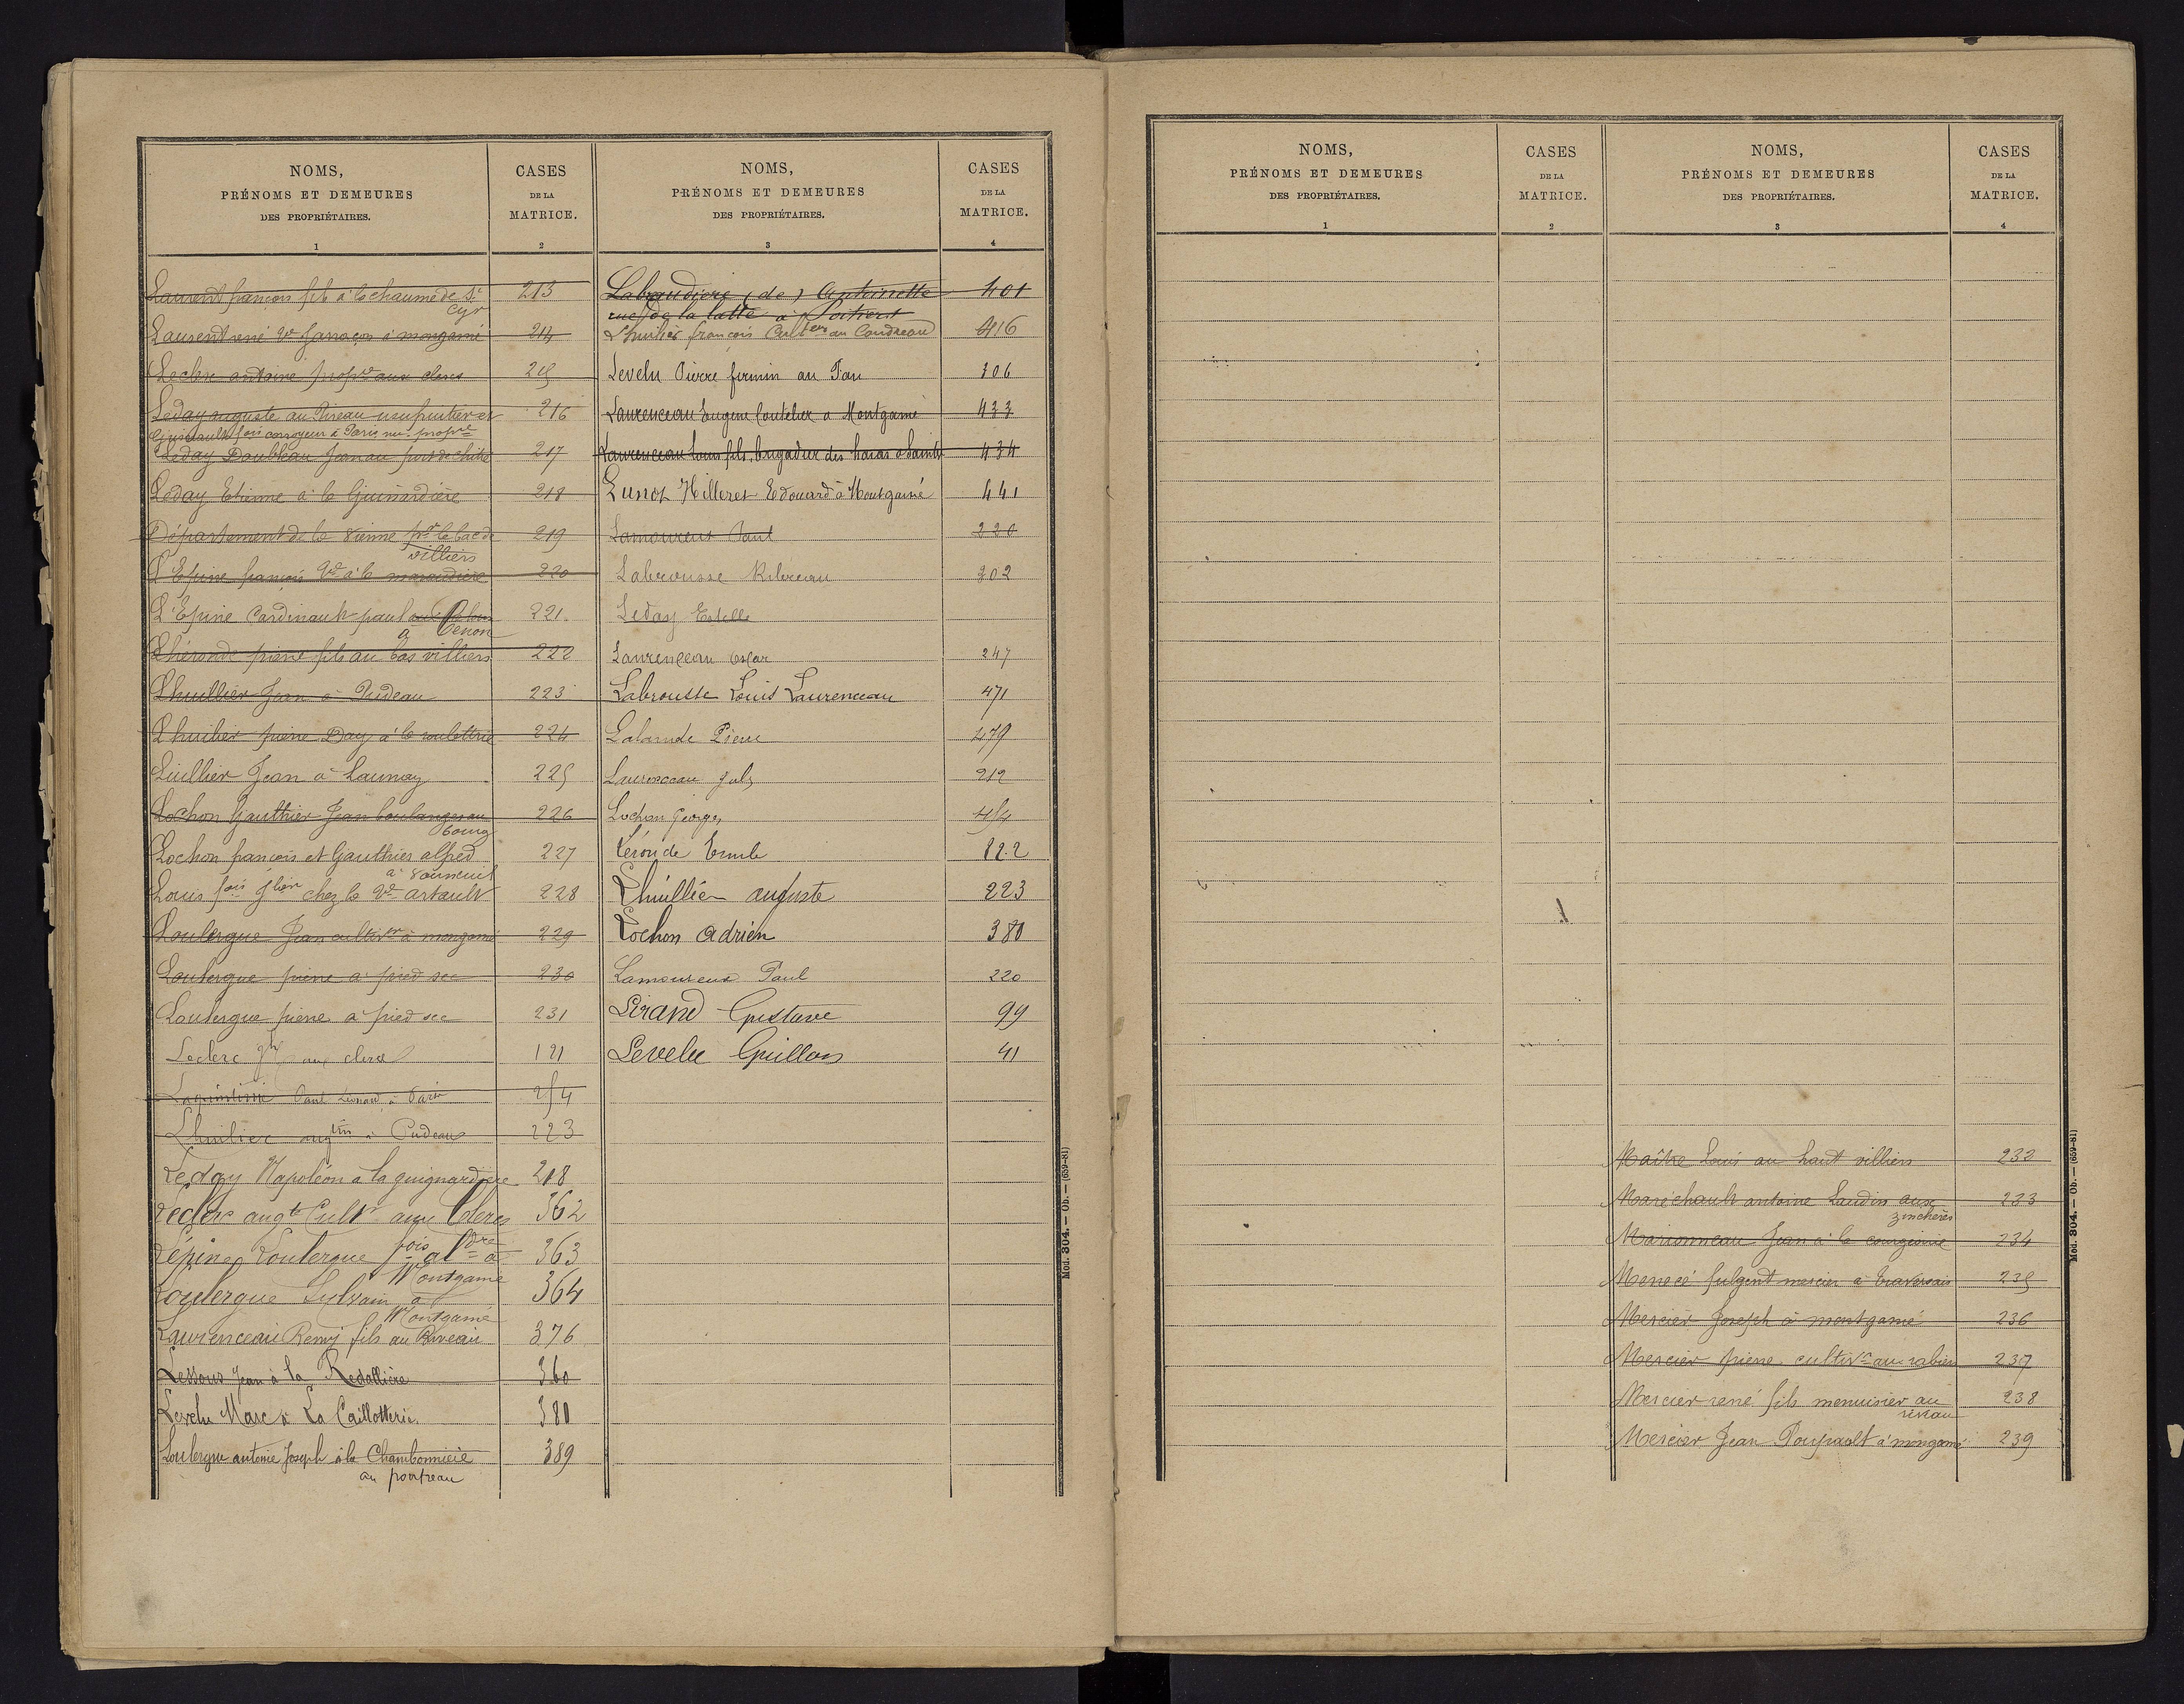 NOMS,
PRÉNOMS ET DEMEURES
DES PROPRIÉTAIRES.
1
CASES
DE LA
MATRICE.
2
Laurent françois fils à la chaume de St
Cyr
213
Laurent rené Ve à mongamé
214
Leclerc antoine propre aux clercs
215
Leday auguste au Riveau usufruitier et
fois corroyeur à Paris nu. propre
216
Leday Daubleau Jean au port de chitré
217
Leday Etienne à la Guinardière
218
Département de la Vienne pr le bac de
villiers
219
L'Epine françois Ve à la maraudière
220
L'Epine Cardinault paul
à Cenon
221.
Lhéronde pierre fils au bas villiers
222
Lhuillier Jean à Pudeau
223
Lhuilier pierre Day à la
224
Luillier Jean à Launay
225
Lochon Gauthier Jean boulanger au
bourg
226
Lochon françois et Gauthier alfred
à Vouneuil
227
Louis fois chez la Ve Artault
228
Loulergue Jean cultivr à mongamé
229
Loulergue pierre à pied sec
230
Loulergue pierre à pied sec
231
Leclerc aux clercs
121
Paul Léonard à Paris
254
Lhuilier augtin à Pudeau
223
Leday Napoléon à la guignardière
218
Leclerc augte Cultr aux Clercs
362
Lépine Loulergue fois aldre à
Montgamé
363
Loulergue Sylvain à
Montgamé
364
Laurenceau Remy fils au Riveau
376
Lessous Jean à la Redallière
360
Levelu Marc à La Caillotterie
380
Loulergue antoine Joseph à la Chambonnière
au
389
NOMS,
PRÉNOMS ET DEMEURES
DES PROPRIÉTAIRES.
3
CASES
DE LA
MATRICE.
4
Labraudière (de) Antoinette
rue de la latte à Poitiers
401
Lhuilier françois Cultter au Coudreau
416
Levelu Pierre firmin au Pau
306
Laurenceau Eugène Coutelier à Montgamé
433
Laurenceau Louis fils, brigadier des haras à Saintes
434
Lunot Hilleret Edouard à Montgamé
441
Lamoureux Paul
220
Labrousse Ribreau
202
Leday Estelle
Laurenceau Oscar
247
Labrousse Louis Laurenceau
471
Lalande Pierre
479
Laurenceau Jules
212
Lochon Georges
454
Léronde Emile
222
Lhuillier auguste
223
Lochon Adrien
380
Lamoureux Paul
220
Lirand Gustave
99
Levelu Guillon
41
Mod. 304. — Ob. — (659-81)
NOMS,
PRÉNOMS ET DEMEURES
DES PROPRIÉTAIRES.
1
CASES
DE LA
MATRICE.
2
NOMS,
PRÉNOMS ET DEMEURES
DES PROPRIÉTAIRES.
3
CASES
DE LA
MATRICE.
4
Maître Louis au haut villiers
232
Maréchault antoine Laudin aux
233
Marionneau Jean à la
234
Menecé fulgent mercier à traversais
235
Mercier Joseph à montgamé
236
Mercier pierre cultivr aux
237
Mercier rené fils menuisier au
riveau
238
Mercier Jean Poupault à mongamé
239
Mod. 304. — Ob. — (659-81)